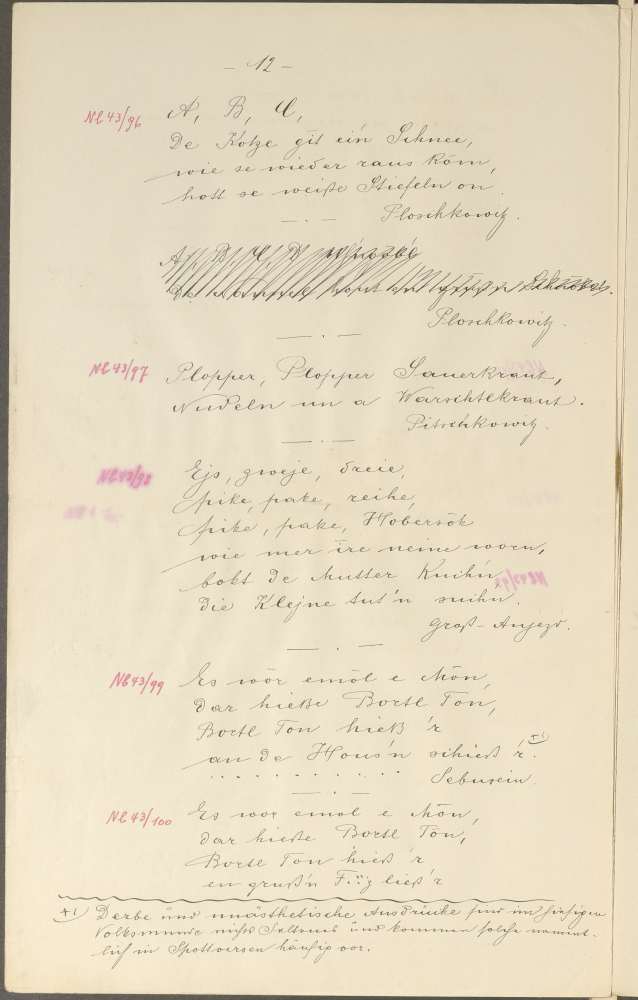 - 12 -
Nl 43/96 A, B, C,
De Kotze git ein Schnee,
wie se wieder raus köm,
hott se weiße Stiefeln on
Ploschkowitz.
A, B, C, D
Ploschkowitz.
Nl 43/97 Plopper, Plopper Sauerkraut,
Nudeln un a Warschtlkraut.
Pitschkowitz.
Nl 43/98 Ejs, zweje, dreie,
pike, pake, reihe,
pike, pake, Hobersök
wie mer ire neine woen,
bokt de Mutter Knihn,
die Klejne tut'n suihn.
Groß-Aujezd.
Nl 43/99 Es wör emöl e Mön,
dar hieße Bortl Ton,
Bortl Ton hieß 'r
an de Hous'n schieß 'r. +)
Sebusein.
Nl 43/100 Es wor emol e Mön,
dar hieße Bortl Tön,
Bortl Ton hieß 'r
en gruß'n F...z ließ 'r
+) Derbe und unästhetische Ausdrücke sind im hiesigen
Volksmunde nichts Seltenes und kommen solche nament-
lich in Spottversen häufig vor.